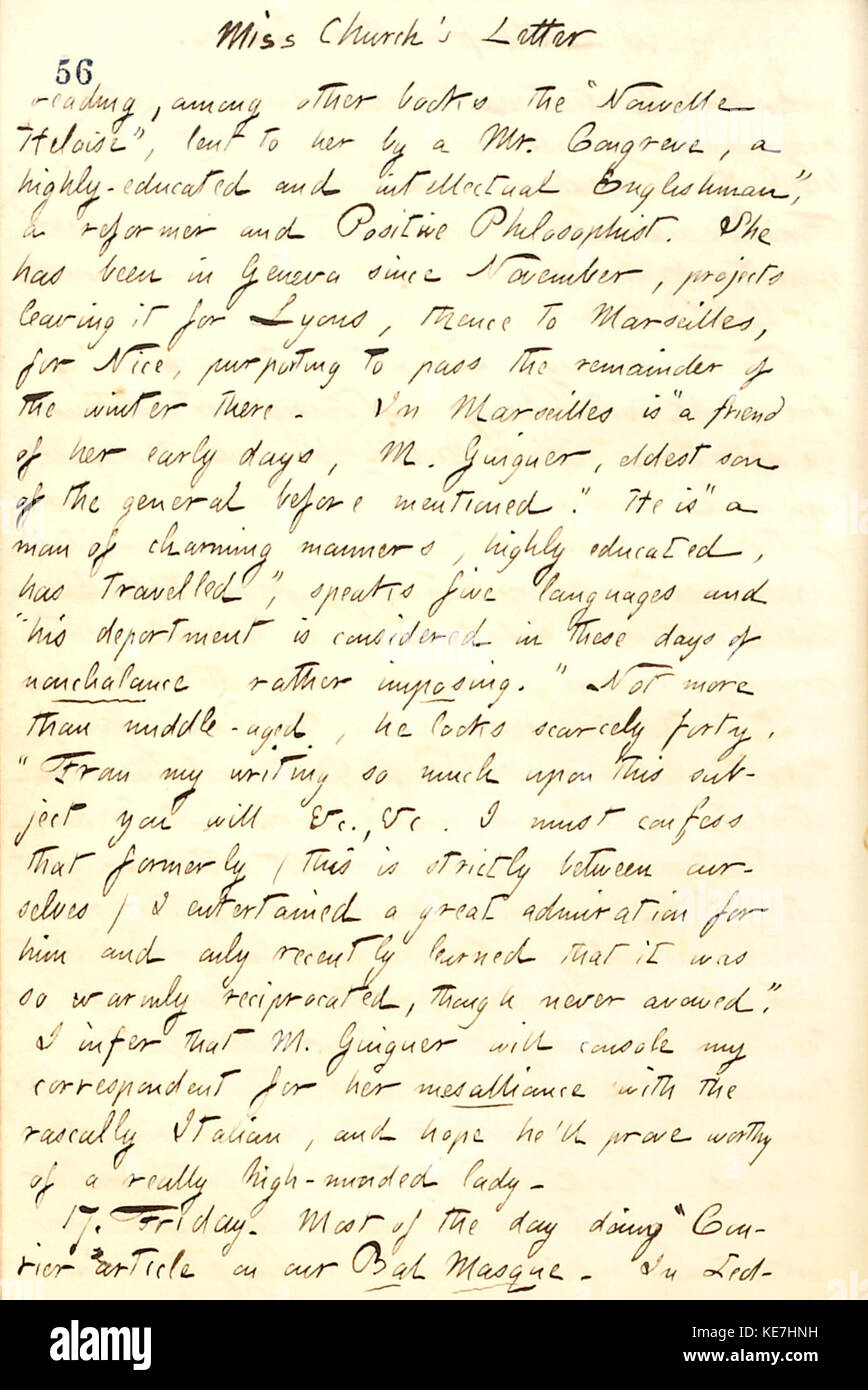 Miss Church's Letter
56
reading, among other books the "Nouvelle
Heloise", lent to her by a Mr. Congreve, a
highly-educated and intellectual Englishman",
a reformer and Positive Philosophist. She
has been in Geneva since November, projects
leaving it for Lyons, thence to Marseilles,
for Nice, purporting to pass the remainder of
the winter there. In Marseilles is "a friend
of her early days, M. Guiguer, eldest son
of the general before mentioned." He is "a
man of charming manners, highly educated,
has travelled", speaks five languages and
"his department is considered in these days of
nonchalance rather imposing." Not more
than middle-aged, he looks scarcely forty.
"From my writing so much upon this sub-
ject you will &c., &c. I must confess
that formerly (this is strictly between our-
selves) I entertained a great admiration for
him and only recently learned that it was
so warmly reciprocated, though never avowed."
I infer that M. Guiguer will console my
correspondent for her mesalliance with the
rascally Italian, and hope he'll prove worthy
of a really high-minded lady.
17. Friday. Most of the day doing "Cou-
rier" article on our Bal Masque. In Led-
alamy stock photo
KE7HNH
www.alamy.com